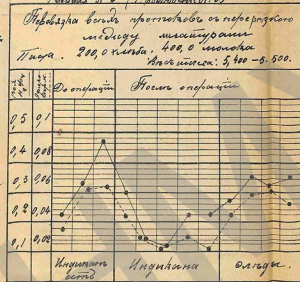 Перевязка всѣхъ протоковъ съ перерѣзкою
между лигатурами
Пища. 200,0 хлѣба. 400,0 молока
Вѣсъ птица: 5,400 — 5,500.
До операціи Послѣ операціи
0,5 0,1
0,4 0,08
0,3 0,06
0,2 0,04
0,1 0,02
Индикан Индикана слѣды.
есть